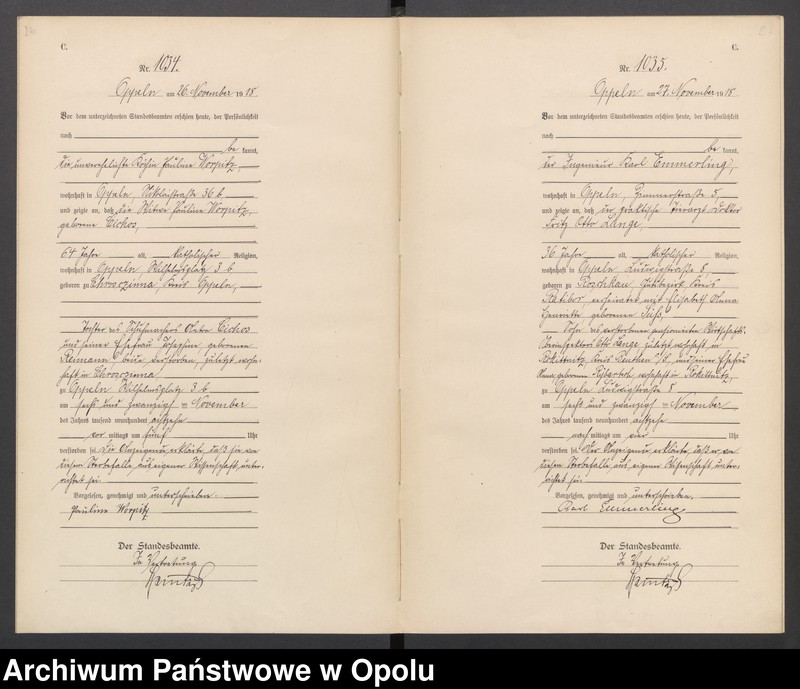 C.
Nr. 1034.
Oppeln am 26. November 1918
Vor dem unterzeichneten Standesbeamten erschien heute, der Persönlichkeit
nach
be kannt,
die unverehelichte Köchin Pauline Worpitz,
wohnhaft in Oppeln, Nikolaistraße 36 b
und zeigte an, daß die Witwe Pauline Worpitz,
geborene Cichos,
64 Jahre alt, katholischer Religion,
wohnhaft in Oppeln, Wilhelmsplatz 3 b
geboren zu Chrosczinna, Kreis Oppeln,
Tochter des Schuhmachers Cichos
und seiner Ehefrau Josephine geborenen
Reimann, beide verstorben, zuletzt wohn-
haft in Chrosczinna
zu Oppeln Wilhelmsplatz 3 b
am sechs und zwanzigsten November
des Jahres tausend neunhundert achtzehn
vor mittags um fünf Uhr
verstorben sei. Die Anzeigende erklärte, daß sie von
diesem Sterbefalle aus eigener Wissenschaft unter-
richtet sei.
Vorgelesen, genehmigt und unterschrieben.
Pauline Worpitz
Der Standesbeamte.
In Vertretung
C.
Nr. 1035.
Oppeln am 27. November 1918
Vor dem unterzeichneten Standesbeamten erschien heute, der Persönlichkeit
nach
be kannt,
der Ingenieur Karl Emmerling,
wohnhaft in Oppeln, Zimmerstraße 5
und zeigte an, daß der praktische Tierarzt Doktor
Fritz Otto Lange,
36 Jahre alt, katholischer Religion,
wohnhaft in Oppeln, Ludwigstraße 8,
geboren zu Roschkau, Gutsbezirk Kreis
Ratibor, verheiratet mit Elisabeth
Henriette geborenen Süß,
Sohn des verstorbenen pensionierten Wirtschafts-
Inspektors Otto Lange zuletzt wohnhaft in
Rokittnitz Kreis Beuthen O/S. und seiner Ehefrau
geborenen wohnhaft in Rokittnitz,
zu Oppeln Ludwigstraße 8
am sechs und zwanzigsten November
des Jahres tausend neunhundert achtzehn
nach mittags um vier Uhr
verstorben sei. Der Anzeigende erklärte, daß er von
diesem Sterbefalle aus eigener Wissenschaft unter-
richtet sei.
Vorgelesen, genehmigt und unterschrieben.
Karl Emmerling
Der Standesbeamte.
In Vertretung
Archiwum Państwowe w Opolu